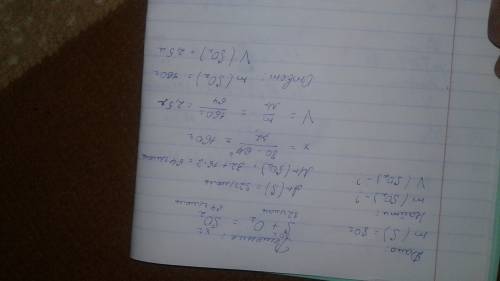 Дано:
m(S) = 80г
Найти:
m(SO₂) - ?
V(SO₂) - ?
Решение:
80г xг
S + O₂ = SO₂
32г/моль 64г/моль
Ar(S) = 32г/моль
Mr(SO₂) = 32 + 16·2 = 64г/моль
x = 80·64 / 32 = 160г
V = m / M = 160г / 64 = 2,5л
Ответ: m(SO₂) = 160г
V(SO₂) = 2,5л